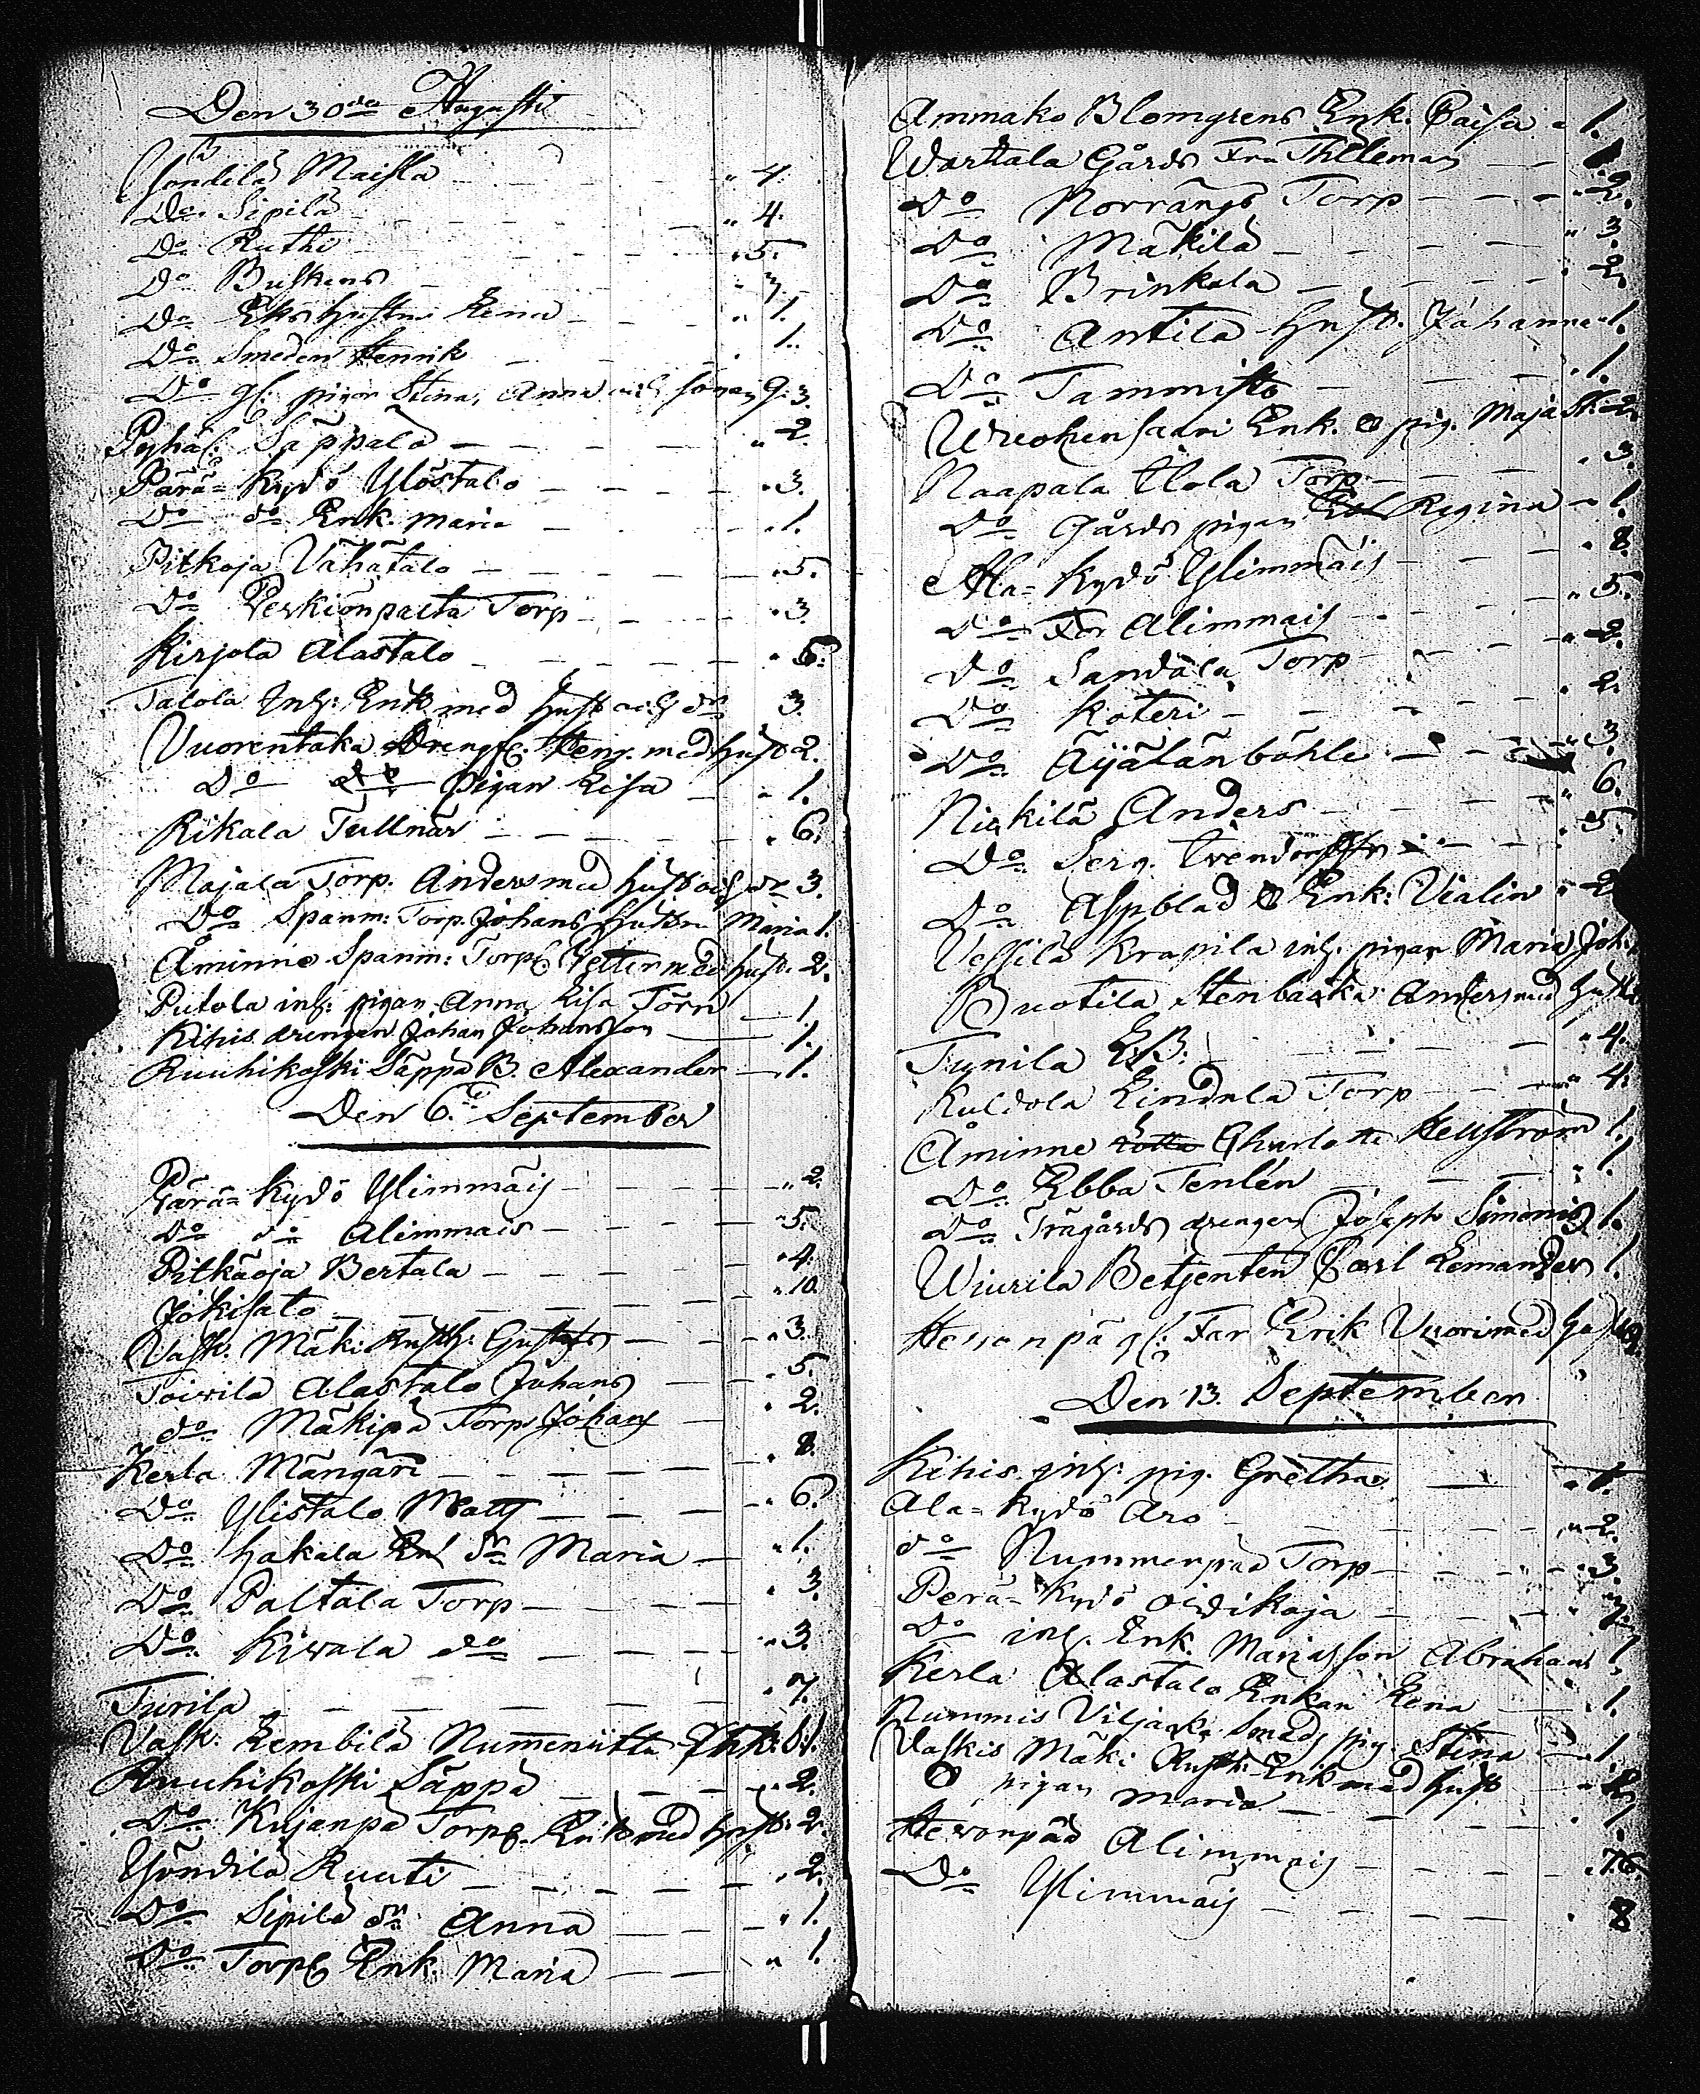 Den 30de Augusti
Yöndilä Maisla - - - " 4.
Do Sipilä - - - " 4.
Do Ruthi - - - " 5.
Do Buskens - " 3.
Do Hustru Lena - - - " 1.
Do Smeden Henrik - - - 1.
Do gl: pigor Stina, Anna och 3.
Pyhäl: Säppälä - - - " 2.
Pärä=Kydö Ylöstalo - - - " 3.
Do do Enk. Maria - - " 1.
Pitkoja Vähätalo - - - " 5.
Do Torp - - - " 3.
Kirjola Alastalo - - - " 5.
Talola Inh: Enk med hust och dr 3.
Vuorentaka Drengen Henr. med Hust 2.
Do do Pigan Lisa - " 1.
Rikala Tullnär - - - " 6.
Majala Torp. Anders med hust och dr 3.
Do Spanm: Torp. Johans Hustru Maria 1.
Åminne Spanm: Torp. Petter med hust. 2.
Putola inh: pigan Anna Lisa Törn - 1.
Kihis drengen Johan Johansson - 1.
Ruuhikoski Säppä B. Alexander - 1.
Den 6te September
Pärä=Kydö Ylimmäis - - - " 2.
Do do Alimmais - - - " 5.
Pitkäoja Bertala - - - " 4.
Jokisalo - - - " 10.
Vask. Mäki Rusth: Gustafs - - " 3.
Toivila Alastalo Johans - - 5.
do Mäkipä Torp Johans - " 2.
Kerla Mängäri - - - " 8.
Do Ylistalo Matts - - - " 6.
Do Hakala dr Maria - " 1.
Do Paltala Torp - - - " 3.
Do Kiwala do - - - " 3.
Turila - - - " 7.
Vask: Lembilä Nummeniitta Enk: 1.
Ruuhikoski Säppä - - - " 2.
Do Kujanpä Torp. Erik med Hust: 2.
Yöndilä Ruuti - - - " 2.
Do Sipilä dr Anna - - " 1.
Do Torp. Enk. Maria - - " 1.
Ammako Blomgrens Enk. Caisa " 1.
Wartala Gårds Fru Thileman - -
Do Norrängs Torp - - - " 2.
Do Mäkilä - - - " 3.
Do Brinkala - - - " 2.
Do Antila Hust. Johanna " 1.
Do Tammisto - - - " 1.
Wreokensaari Enk. & pig. Maja St. 2.
Naapala Ilola Torp - - " 3.
Do Gårds pigan Regina - " 1.
Ala=Kydö Ylimmäis - - - " 8.
Do Alimmais - - - " 5.
Do Sandala Torp - - - " 2.
Do Koteri - - - " 2.
Do Äijälänböhle - - - " 3.
Niskilä Anders - - - " 6.
Do Serg. - - " 5.
Do Aspblad & Enk: Vialin " 2
Vessilä Krapila inh: pigan Maria Joh:
Buotila Stenbacka Anders med Hust
Tynila - - - " 4.
Kuldola Lindula Torp - - " 4.
Åminne Charlotte Hellström 1.
Do Ebba Tenlén - - - " 1.
Do Trägårds drengen Joseph Simonis 1.
Wiurila Betjenten Carl Lemander 1.
Hevonpä gl: Far Erik Vuori med Hust
Den 13. September
Kihis inh: pig. Gretha - " 1.
Ala=Kydö Aro - - - " 2.
do Nummenpää Torp - - - " 3.
Perä=Kydö Oidikoja - - - " 7.
Do inh. Enk. Marias son Abraham 1
Kerla Alastalo Enkan Lena - - " 1.
Nummis Viljaka Smeds pig: Stina - " 1.
Vaskis Mäki Rusth: Erik med hust - " 2.
& pigan Maria - - - " 1.
Hevonpää Alimmais - - - " 7.
Do Ylimmäis - - - " 8